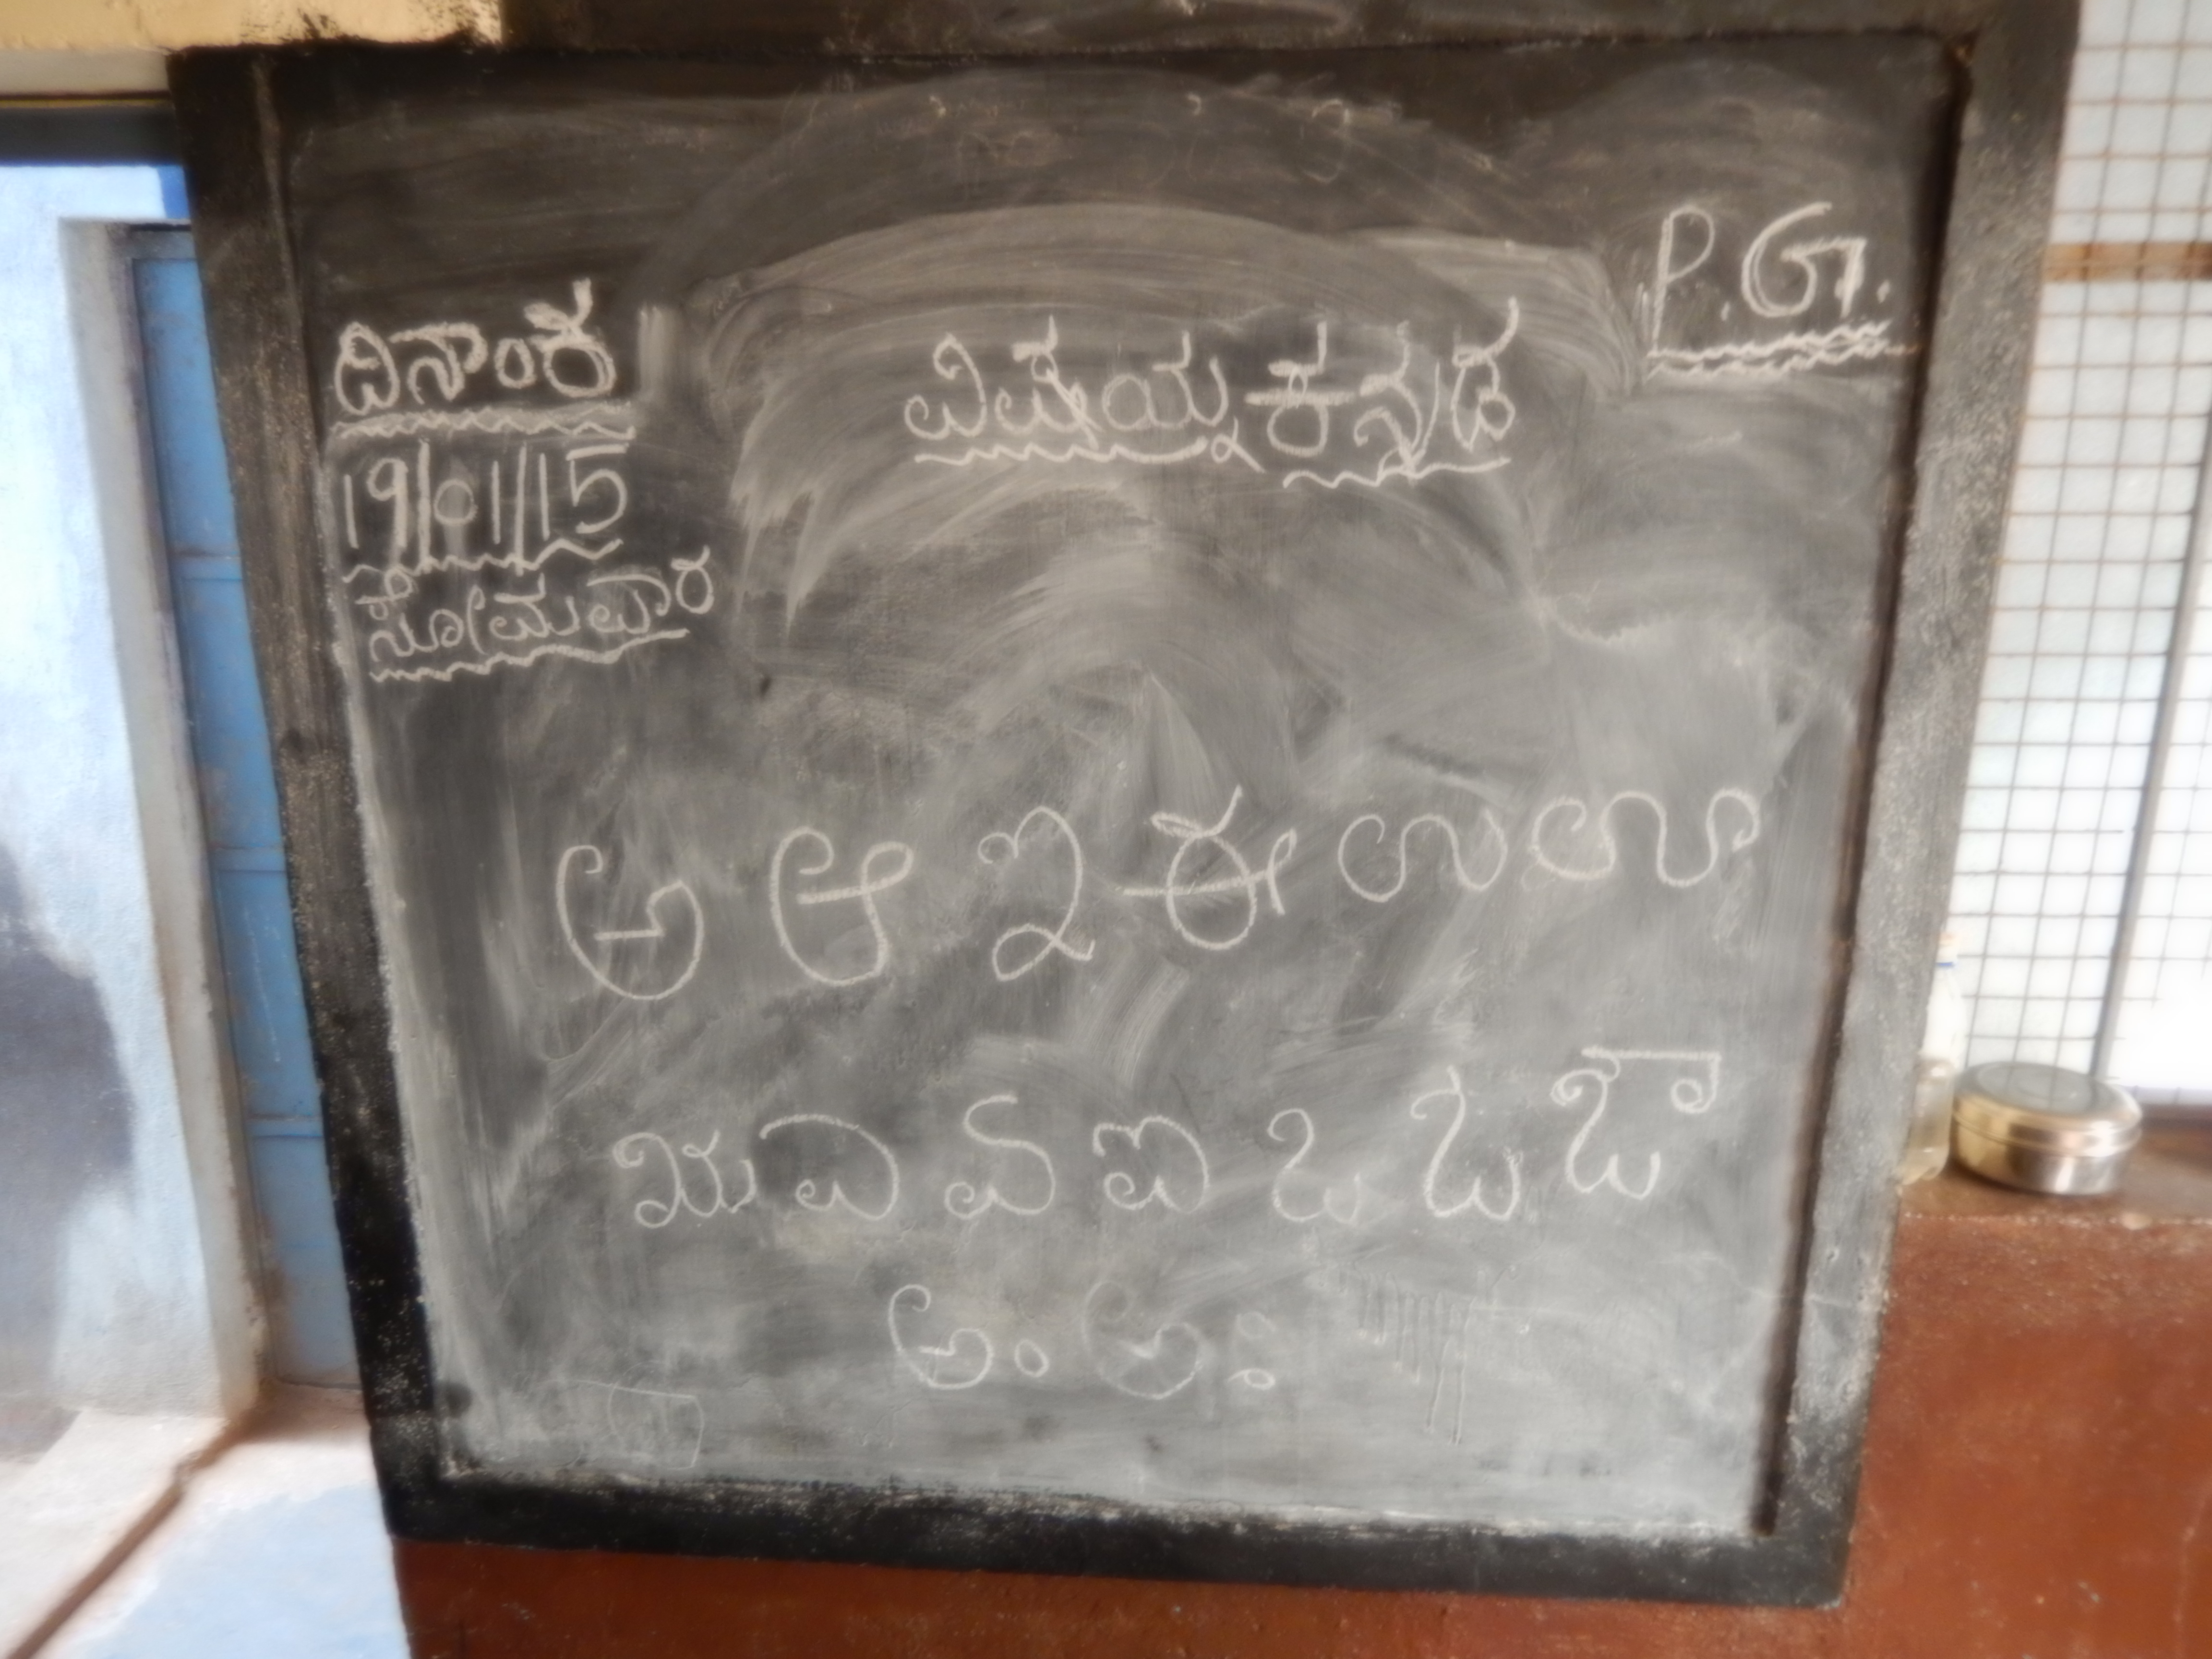 P.G.
ದಿನಾಂಕ
ವಿಷಯ ಕನ್ನಡ
19/01/15
ಸೋಮವಾರ
ಅ ಆ ಇ ಈ ಉ ಊ
ಋ ಎ ಏ ಐ ಒ ಓ ಔ
ಅಂ ಅಃ